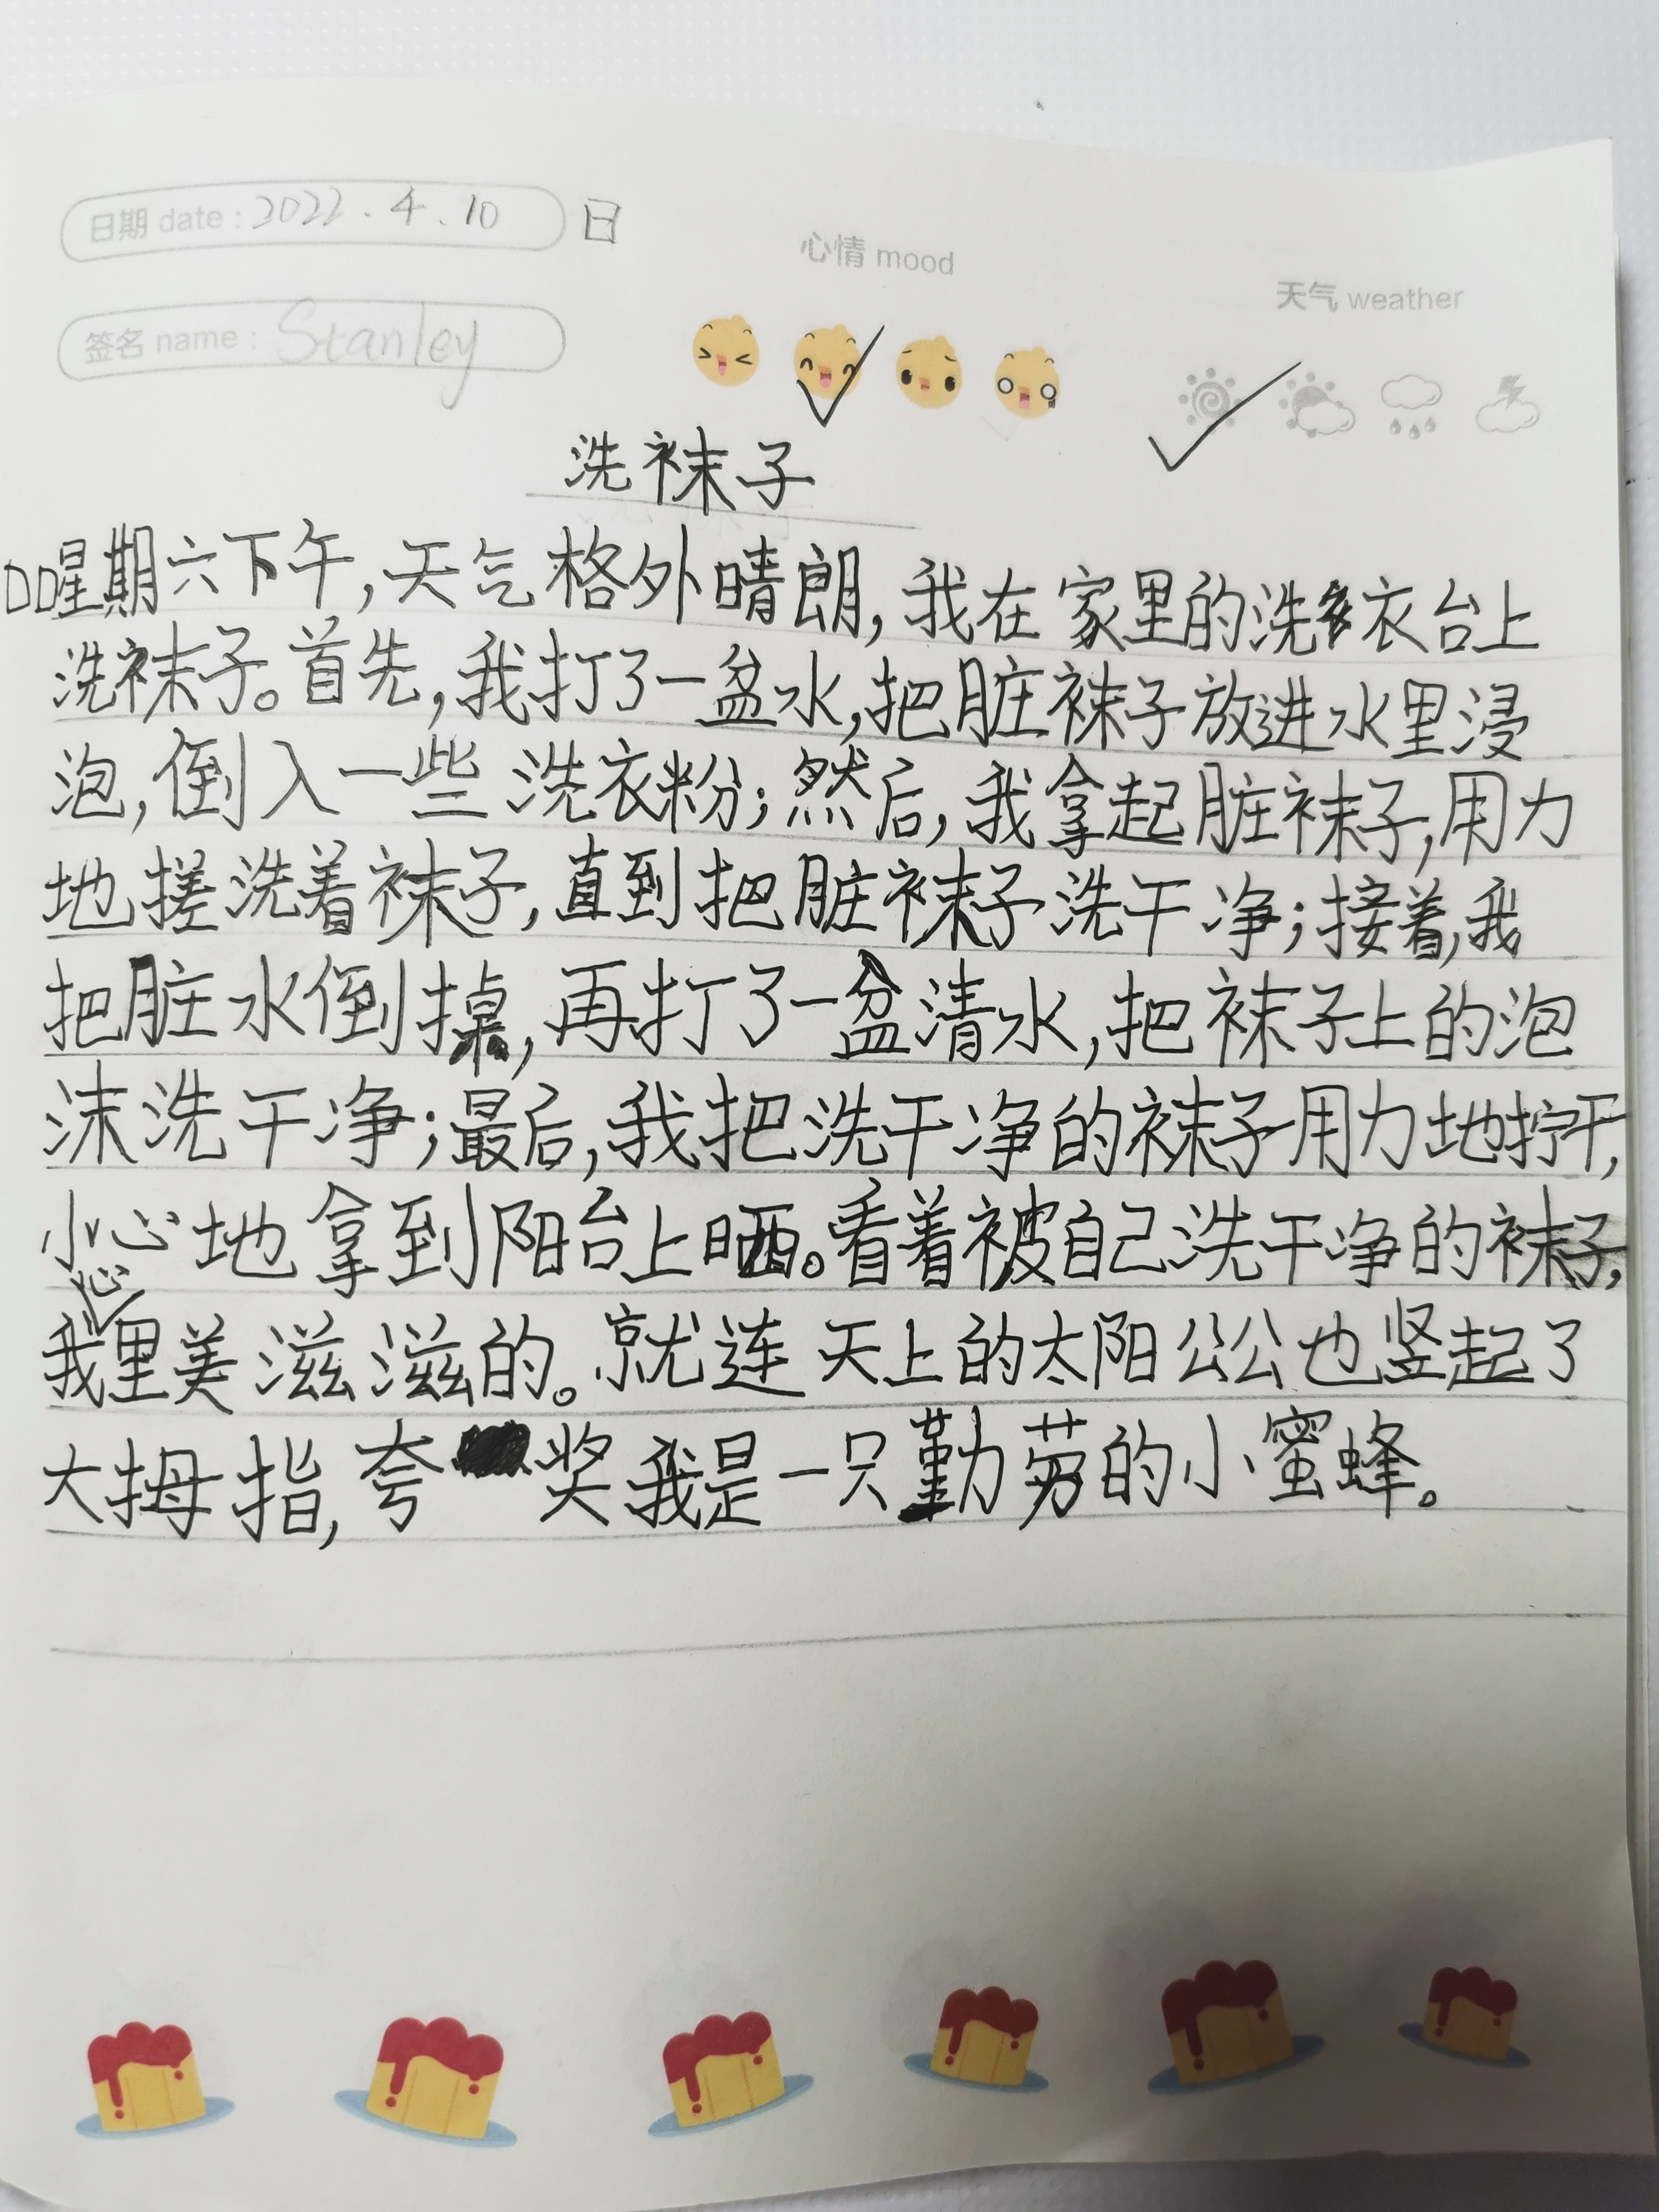 日期 date : 2022.4.10 日
心情 mood
天气 weather
签名 name : Stanley
洗袜子
星期六下午,天气格外晴朗,我在家里的洗衣台上
洗袜子。首先,我打了一盆水,把脏袜子放进水里浸
泡,倒入一些洗衣粉;然后,我拿起脏袜子,用力
地搓洗着袜子,直到把脏袜子洗干净;接着,我
把脏水倒掉,再打了一盆清水,把袜子上的泡
沫洗干净;最后,我把洗干净的袜子用力地拧干,
小心地拿到阳台上晒。看着被自己洗干净的袜子,
我心里美滋滋的。就连天上的太阳公公也竖起了
大拇指,夸奖我是一只勤劳的小蜜蜂。